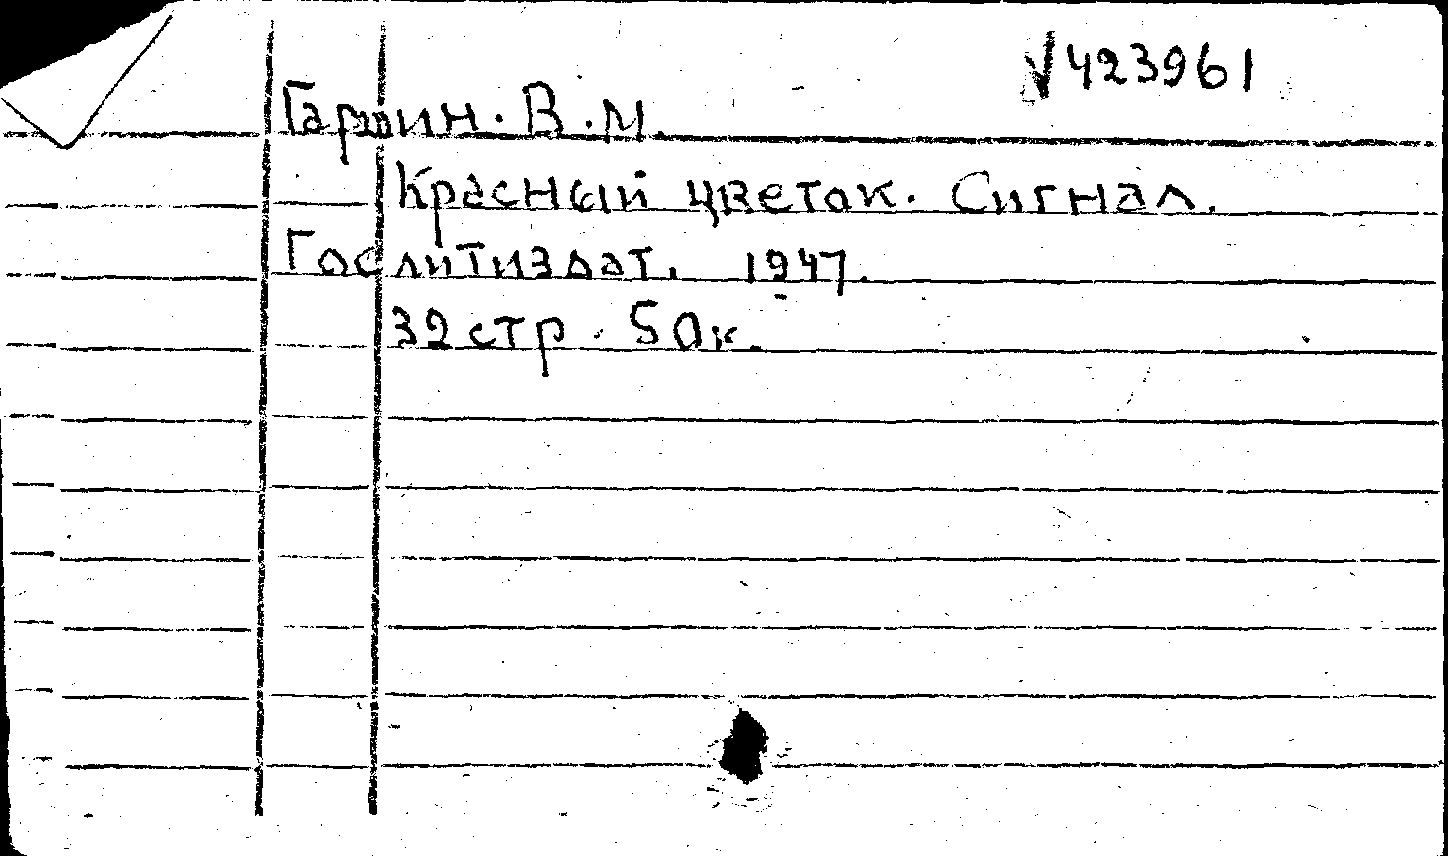 √423961
Гаршин. В.М.
Красный цветок. Сигнал.
Гослитиздат. 1947.
32 стр. 50к.